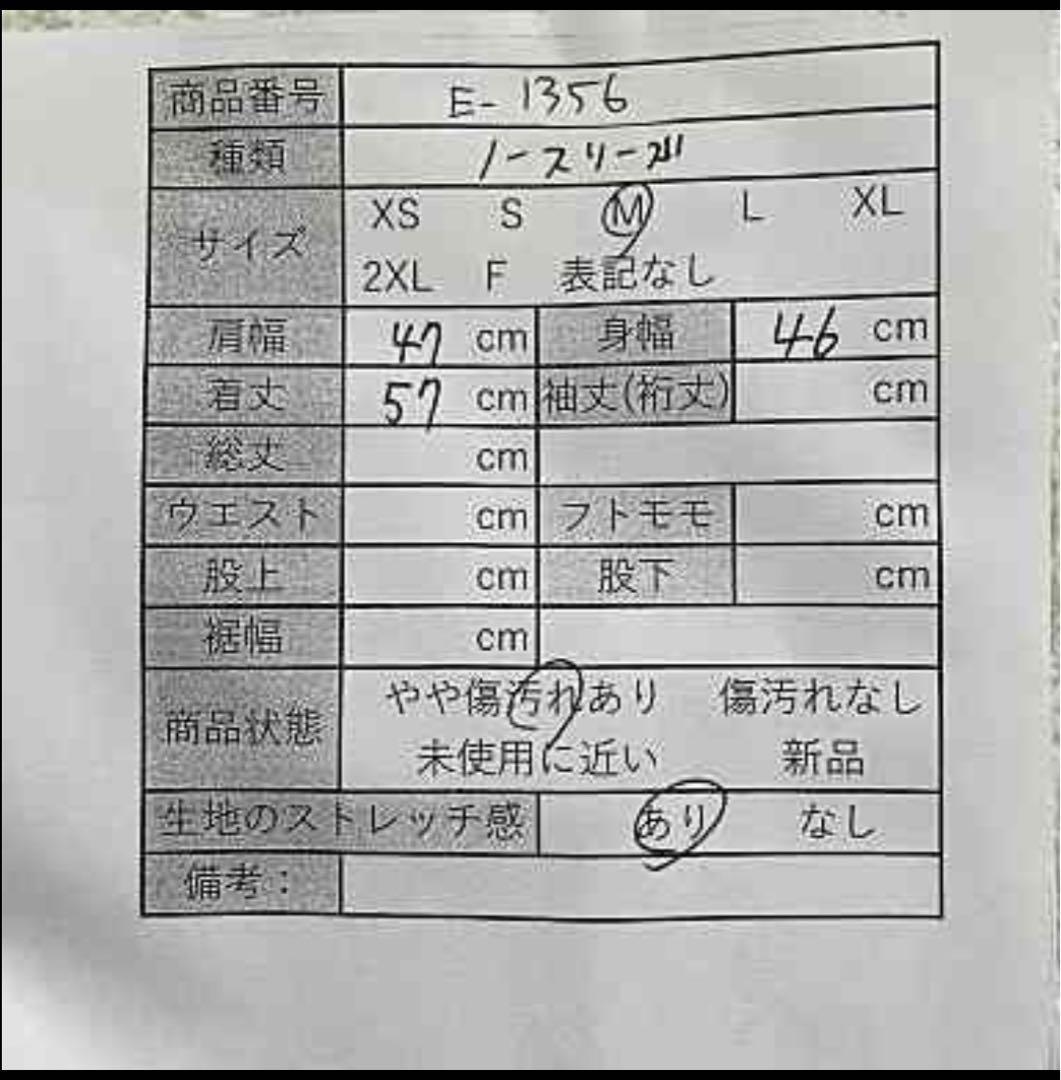 商品番号 E-1356
種類 ノースリーブ
サイズ XS S M L XL
2XL F 表記なし
肩幅 47 cm 身幅 46 cm
着丈 57 cm 袖丈(裄丈) cm
総丈 cm
ウエスト cm フトモモ cm
股上 cm 股下 cm
裾幅 cm
商品状態 やや傷汚れあり 傷汚れなし
未使用に近い 新品
生地のストレッチ感 あり なし
備考：